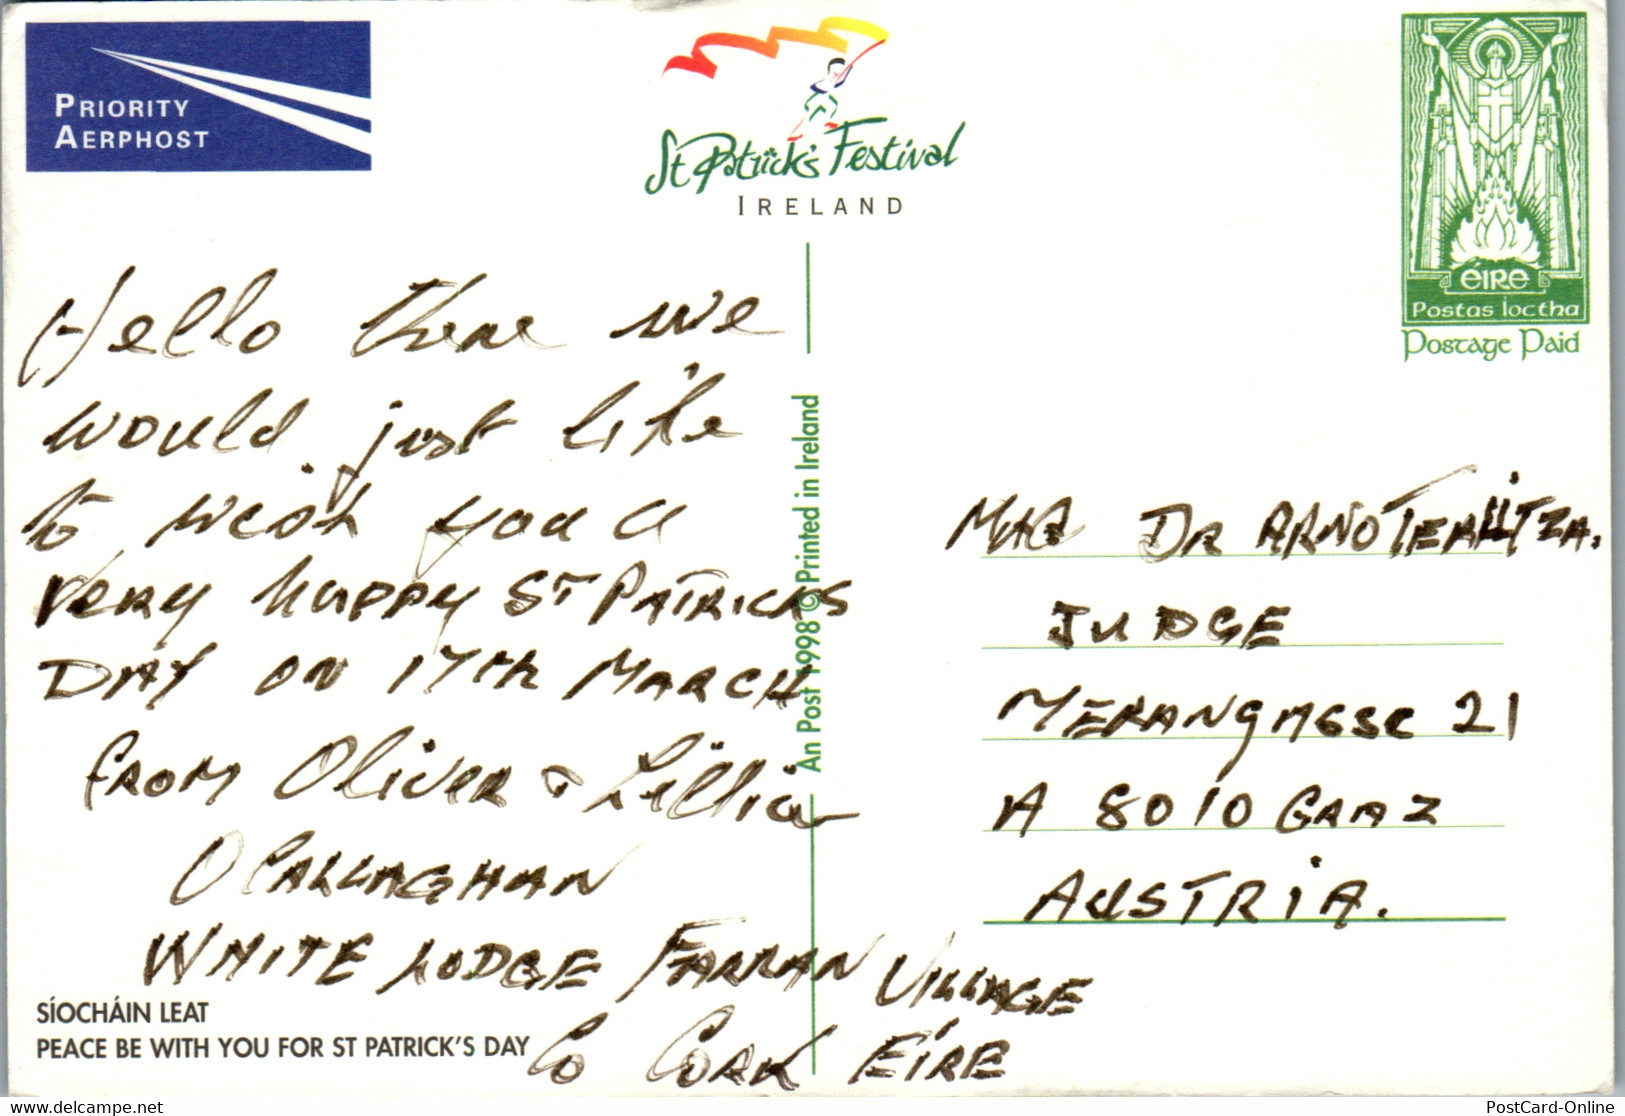 PRIORITY
AERPHOST
St Patrick's Festival
IRELAND
ÉIRE
Postas íoctha
Postage Paid
Hello there we
would just like
to wish you a
very happy ST PATRICKS
DAY ON 17TH MARCH
FROM Oliver & Lillia
O CALLAGHAN
WHITE LODGE FARRAN VILLAGE
Co CORK EÍRE
SÍOCHÁIN LEAT
PEACE BE WITH YOU FOR ST PATRICK'S DAY
An Post 1998 © Printed in Ireland
MAG DR ARNO
JUDGE
MERANGASSE 21
A 8010 GRAZ
AUSTRIA.
www.delcampe.net
PostCard-Online